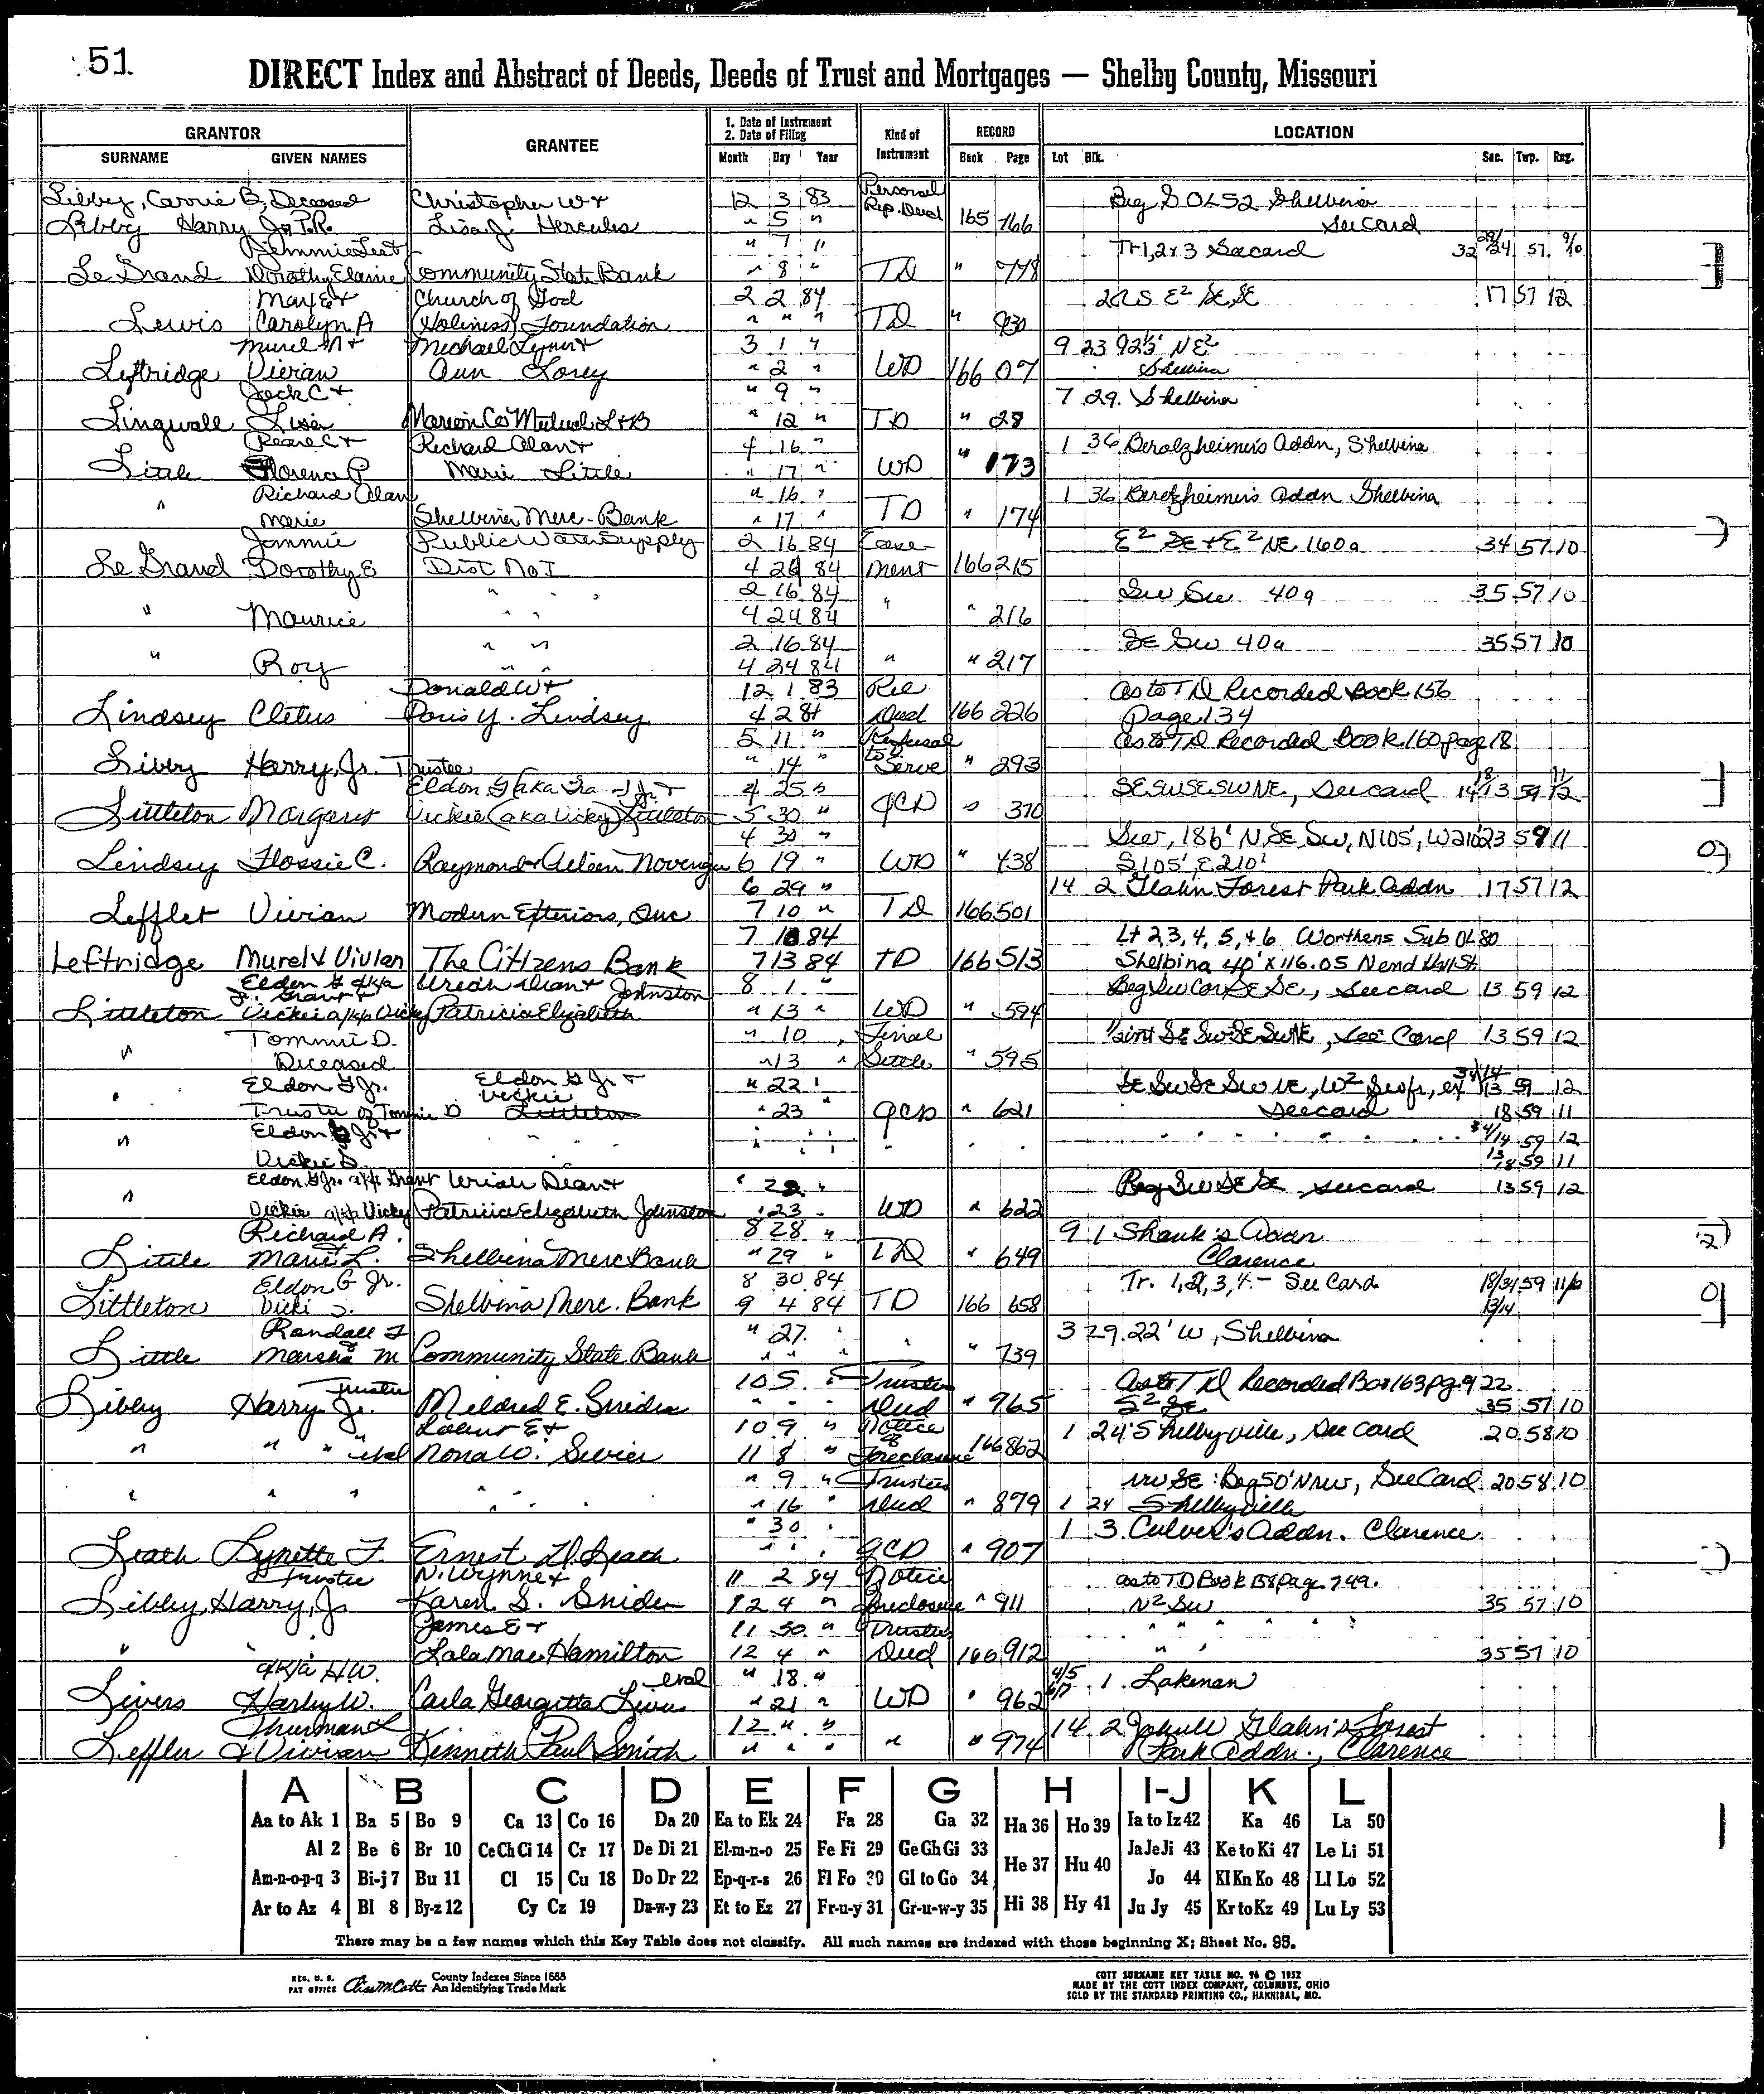 51
DIRECT Index and Abstract of Deeds, Deeds of Trust and Mortgages — Shelby County, Missouri
GRANTOR GRANTEE 1. Date of Instrument 2. Date of Filing Kind of Instrument RECORD LOCATION
SURNAME GIVEN NAMES Month Day Year Book Page Lot Blk. Sec. Twp. Rng.
Libby, Carrie B, Deceased Christopher W + 12 3 83 Personal Rep. Deed Beg S OL52 Shelbina
Libby Harry Jr P.R. Lisa J. Hercules " 5 " 165 766 See Card
Jimmie Lee + " 7 " Tr 1, 2 + 3 See card 32 29/24 57 9/10
Le Grand Dorothy Elaine Community State Bank " 8 " TD " 778
Max E + Church of God 2 2 84 2RS E² SE SE 17 57 12
Lewis Carolyn A (Holiness) Foundation " " " TD " 930
Murel N + Michael Lynn + 3 1 " 9 23 92½' N E²
Leftridge Vivian Ann Lorey " 2 " WD 166 07 Shelbina
Jack C + " 9 " 7 29 Shelbina
Lingwall Lisa Marion Co Mutual L+B " 12 " TD " 28
Pearl C + Richard Alan + 4 16 " 1 36 Berolzheimer's Addn, Shelbina
Little Florence P Marie Little " 17 " WD " 173
Richard Alan " 16 " 1 36 Berolzheimer's Addn Shelbina
" Marie Shelbina Merc. Bank " 17 " TD " 174
Jimmie Public Water Supply 2 16 84 Ease- E² SE + E² NE 160a 34 57 10
Le Grand Dorothy E Dist No. I 4 24 84 ment 166 215
" " 2 16 84 SW SW 40a 35 57 10
" Maurice " " 4 24 84 " " 216
" " 2 16 84 SE SW 40a 35 57 10
" Roy " " 4 24 84 " " 217
Donald W + 12 1 83 Rel As to TD Recorded Book 156
Lindsey Cletus Doris Y. Lindsey 4 2 84 Deed 166 226 Page 134
5 11 " Refusal As to TD Recorded Book 160 page 18
Libby Harry, Jr. Trustee " 14 " to Serve " 293
Eldon G 4 25 " SE SW SE SW NE, See card
Littleton Margaret Vickie (aka Vicky) Littleton 5 30 " QCD " 370
4 30 " SW, 186' N, SE SW, N105', W210' 23 59 11
Lindsey Flossie C. Raymond + Aileen Novenger 6 19 " WD " 438 S105', E210'
6 29 " 14 2 Glahn Forest Park Addn 17 57 12
Lefflet Vivian Modern Exteriors, Inc 7 10 " TD 166 501
7 10 84 Lt 2 3, 4, 5, + 6 Worthens Sub OL 80
Leftridge Murel & Vivian The Citizens Bank 7 13 84 TD 166 513 Shelbina 40' x 116.05 N end
Eldon G a/k/a Jr. Grant + Uriah Dean + Johnston 8 1 " Beg SW Cor SE SE, See card 13 59 12
Littleton Vickie a/k/a Vicky Patricia Elizabeth " 13 " WD " 594
Tommie D. " 10 " Final ½ int SE SW SE SW NE, See Card 13 59 12
" Deceased " 13 " Settle " 595
" Eldon G Jr. Eldon G Jr + " 22 " SE SW SE SW NE, W²
Trustee of Tommie D Vickie Littleton " 23 " QCD " 621 See card 18 59 11
" Eldon G Jr + " " " " 59 12
Vickie S. 59 11
Eldon G Jr. a/k/a Grant Uriah Dean + " 22 " Beg SW SE SE, See card 13 59 12
" Vickie a/k/a Vicky Patricia Elizabeth Johnston " 23 " WD " 622
Richard A. 8 28 " 9 1 Shank's Addn
Little Marie L. Shelbina Merc Bank " 29 " TD " 649 Clarence
Eldon G Jr. 8 30 84 Tr. 1, 2, 3, 4 - See Card
Littleton Vicki S. Shelbina Merc. Bank 9 4 84 TD 166 658
Randall J " 27 " 3 29 22' W, Shelbina
Little Marsha M Community State Bank " " " " " 739
Trustee 10 5 " Trustee As to TD Recorded Bo 163 pg 922
Libby Harry Jr. Mildred E. Snider " " " Deed " 965 S² SE 35 57 10
Labeur E + 10 9 " Notice of 1 24 Shelbyville, See Card 20 58 10
" " " et al Nona W. Sevier 11 8 " Foreclosure 166 862
" 9 " Trustees NW SE: Beg 50' N NW, See Card 20 58 10
" " " " " " 16 " Deed " 879 1 24 Shelbyville
" 30 " 1 3 Culver's Addn. Clarence
Leath Lynette F. Ernest D. Leach " " " QCD " 907
Trustee N. Wynne + 11 2 84 Notice As to TD Book 158 page 749.
Libby, Harry, Jr Karen S. Snider 12 4 " Foreclosure " 911 N² SW 35 57 10
James E + 11 30 " Trustees " " " "
" " Lala Mae Hamilton 12 4 " Deed 166 912 " " 35 57 10
a/k/a H.W. et al " 18 " 4/5 6/7 1 Lakenan
Livers Harley W. Carla Georgitta Livers " 21 " WD " 962
Thurman L 12 " " 14 2 John W Glahn's Forest
Leffler + Vivian Kenneth Paul Smith " " " " " 974 Park Addn., Clarence
A B C D E F G H I-J K L
Aa to Ak 1 Ba 5 Bo 9 Ca 13 Co 16 Da 20 Ea to Ek 24 Fa 28 Ga 32 Ha 36 Ho 39 Ia to Iz 42 Ka 46 La 50
Al 2 Be 6 Br 10 Ce Ch Ci 14 Cr 17 De Di 21 El-m-n-o 25 Fe Fi 29 Ge Gh Gi 33 He 37 Hu 40 Ja Je Ji 43 Ke to Ki 47 Le Li 51
Am-n-o-p-q 3 Bi-j 7 Bu 11 Cl 15 Cu 18 Do Dr 22 Ep-q-r-s 26 Fl Fo 30 Gl to Go 34 Jo 44 Kl Kn Ko 48 Ll Lo 52
Ar to Az 4 Bl 8 By-z 12 Cy Cz 19 Du-w-y 23 Et to Ez 27 Fr-u-y 31 Gr-u-w-y 35 Hi 38 Hy 41 Ju Jy 45 Kr to Kz 49 Lu Ly 53
There may be a few names which this Key Table does not classify. All such names are indexed with those beginning X; Sheet No. 95.
REG. U. S. PAT OFFICE County Indexes Since 1888 An Identifying Trade Mark
COTT SURNAME KEY TABLE NO. 96 © 1952
MADE BY THE COTT INDEX COMPANY, COLUMBUS, OHIO
SOLD BY THE STANDARD PRINTING CO., HANNIBAL, MO.